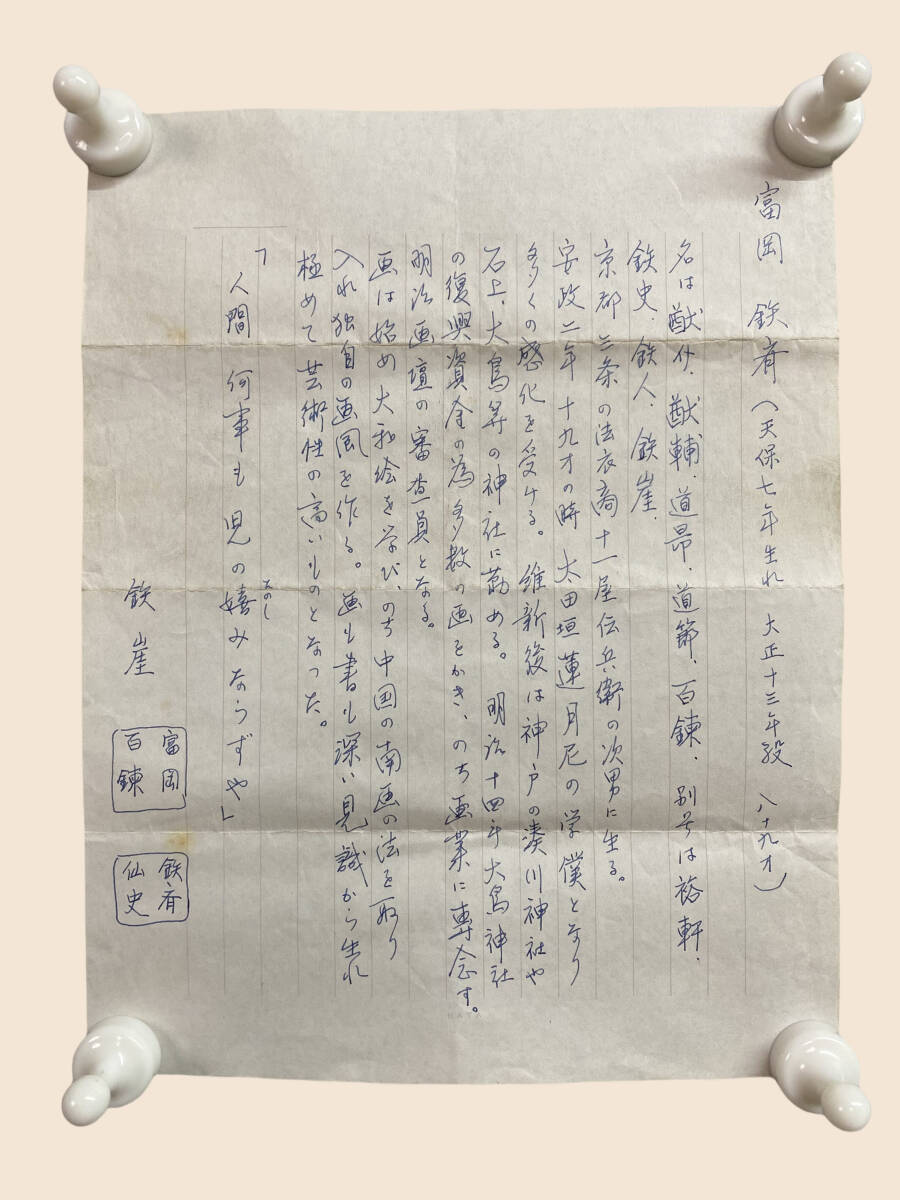 富岡 鉄斉(天保七年生れ 大正十三年歿 八十九才)
名は猷介.猷輔.道昂.道節.百錬.別号は裕軒.
鉄史.鉄人.鉄崖.
京都三条の法衣商十一屋伝兵衛の次男に生る。
安政二年十九才の時 太田垣蓮月尼の学僕となり
多くの感化を受ける。維新後は神戸の湊川神社や
石上、大鳥等の神社に勤める。明治十四年大鳥神社
の復興資金の為多数の画をかき、のち画業に専念す。
明治画壇の審査員となる。
画は始め大和絵を学び、のち中国の南画の法を取り
入れ独自の画風を作る。画も書も深い見識から生れ
極めて芸術性の高いものとなった。
「人間 何事も 児の嬉みならずや」
たのし
鉄崖
富岡
百錬
鉄斉
仙史